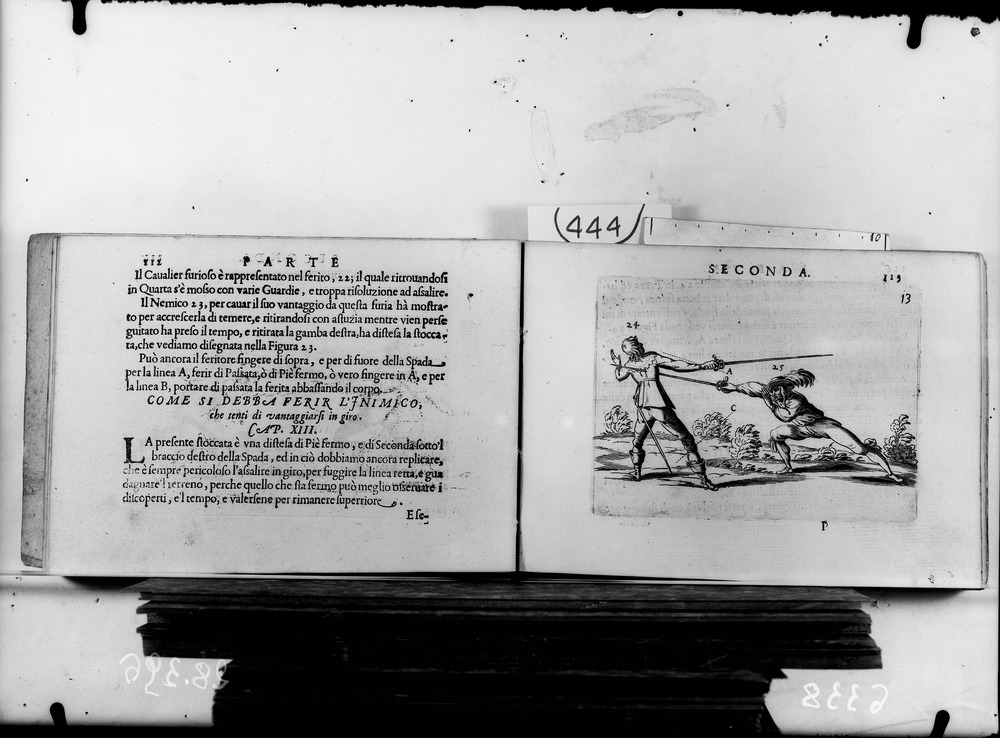 (444)
10
112 PARTE
Il Caualier furioso è rappresentato nel ferito, 22; il quale ritrouandosi
in Quarta s'è mosso con varie Guardie, e troppa risoluzione ad assalire.
Il Nemico 23, per cauar il suo vantaggio da questa furia hà mostra-
to per accrescerla di temere, e ritirandosi con astuzia mentre vien perse
guitato ha preso il tempo, e ritirata la gamba destra, ha distesa la stocca-
ta, che vediamo disegnata nella Figura 23.
Può ancora il feritore fingere di sopra, e per di fuore della Spada
per la linea A, ferir di Passata, ò di Piè fermo, ò vero fingere in A, e per
la linea B, portare di passata la ferita abbassando il corpo.
COME SI DEBBA FERIR L'INIMICO,
che tenti di vantaggiarsi in giro.
CAP. XIII.
LA presente stoccata è vna distesa di Piè fermo, e di Seconda sotto'l
braccio destro della Spada, ed in ciò dobbiamo ancora replicare,
che è sempre pericoloso l'assalire in giro, per fuggire la linea retta, e gua
dagnare'l terreno, perche quello che sta fermo può meglio osseruare i
discoperti, e'l tempo, e valersene per rimanere superiore.
Ese-
SECONDA. 113
13
24
A
25
C
P
28.396
6338